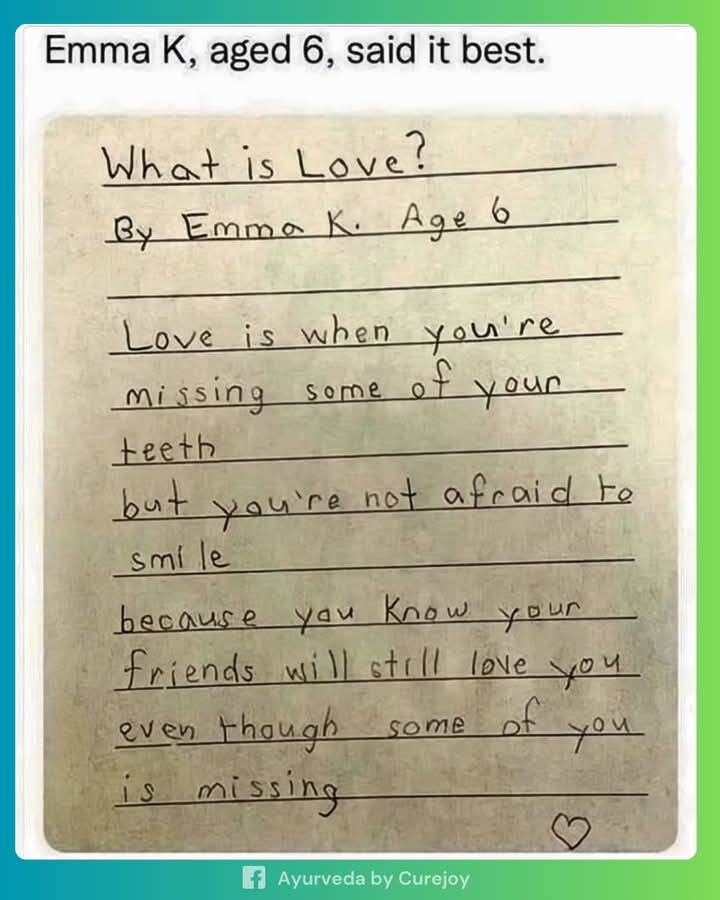 Emma K, aged 6, said it best.
What is Love?
By Emma K. Age 6
Love is when you're
missing some of your
teeth
but you're not afraid to
smile
because you know your
friends will still love you
even though some of you
is missing
Ayurveda by Curejoy